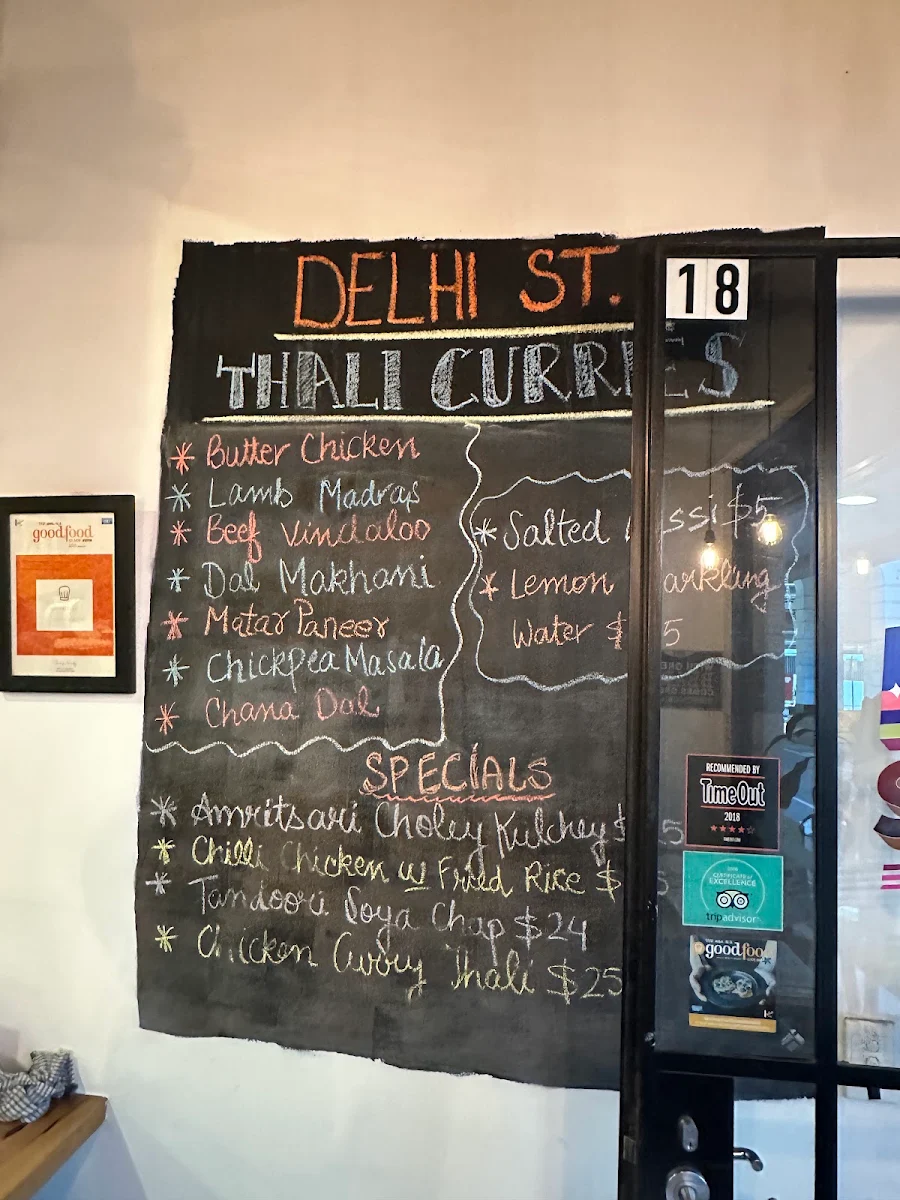 DELHI ST.
18
THALI CURRIES
* Butter Chicken
* Lamb Madras
* Beef Vindaloo
* Dal Makhani
* Matar Paneer
* Chickpea Masala
* Chana Dal
* Salted ssi $5
* Lemon arkling
Water $ 5
SPECIALS
* Amritsari Choley Kulchey $ 5
* Chilli Chicken w Fried Rice $
* Tandoori Soya Chap $24
* Chicken Curry Thali $25
goodfood
RECOMMENDED BY
TimeOut
2018
CERTIFICATE of
EXCELLENCE
tripadvisor
goodfoo